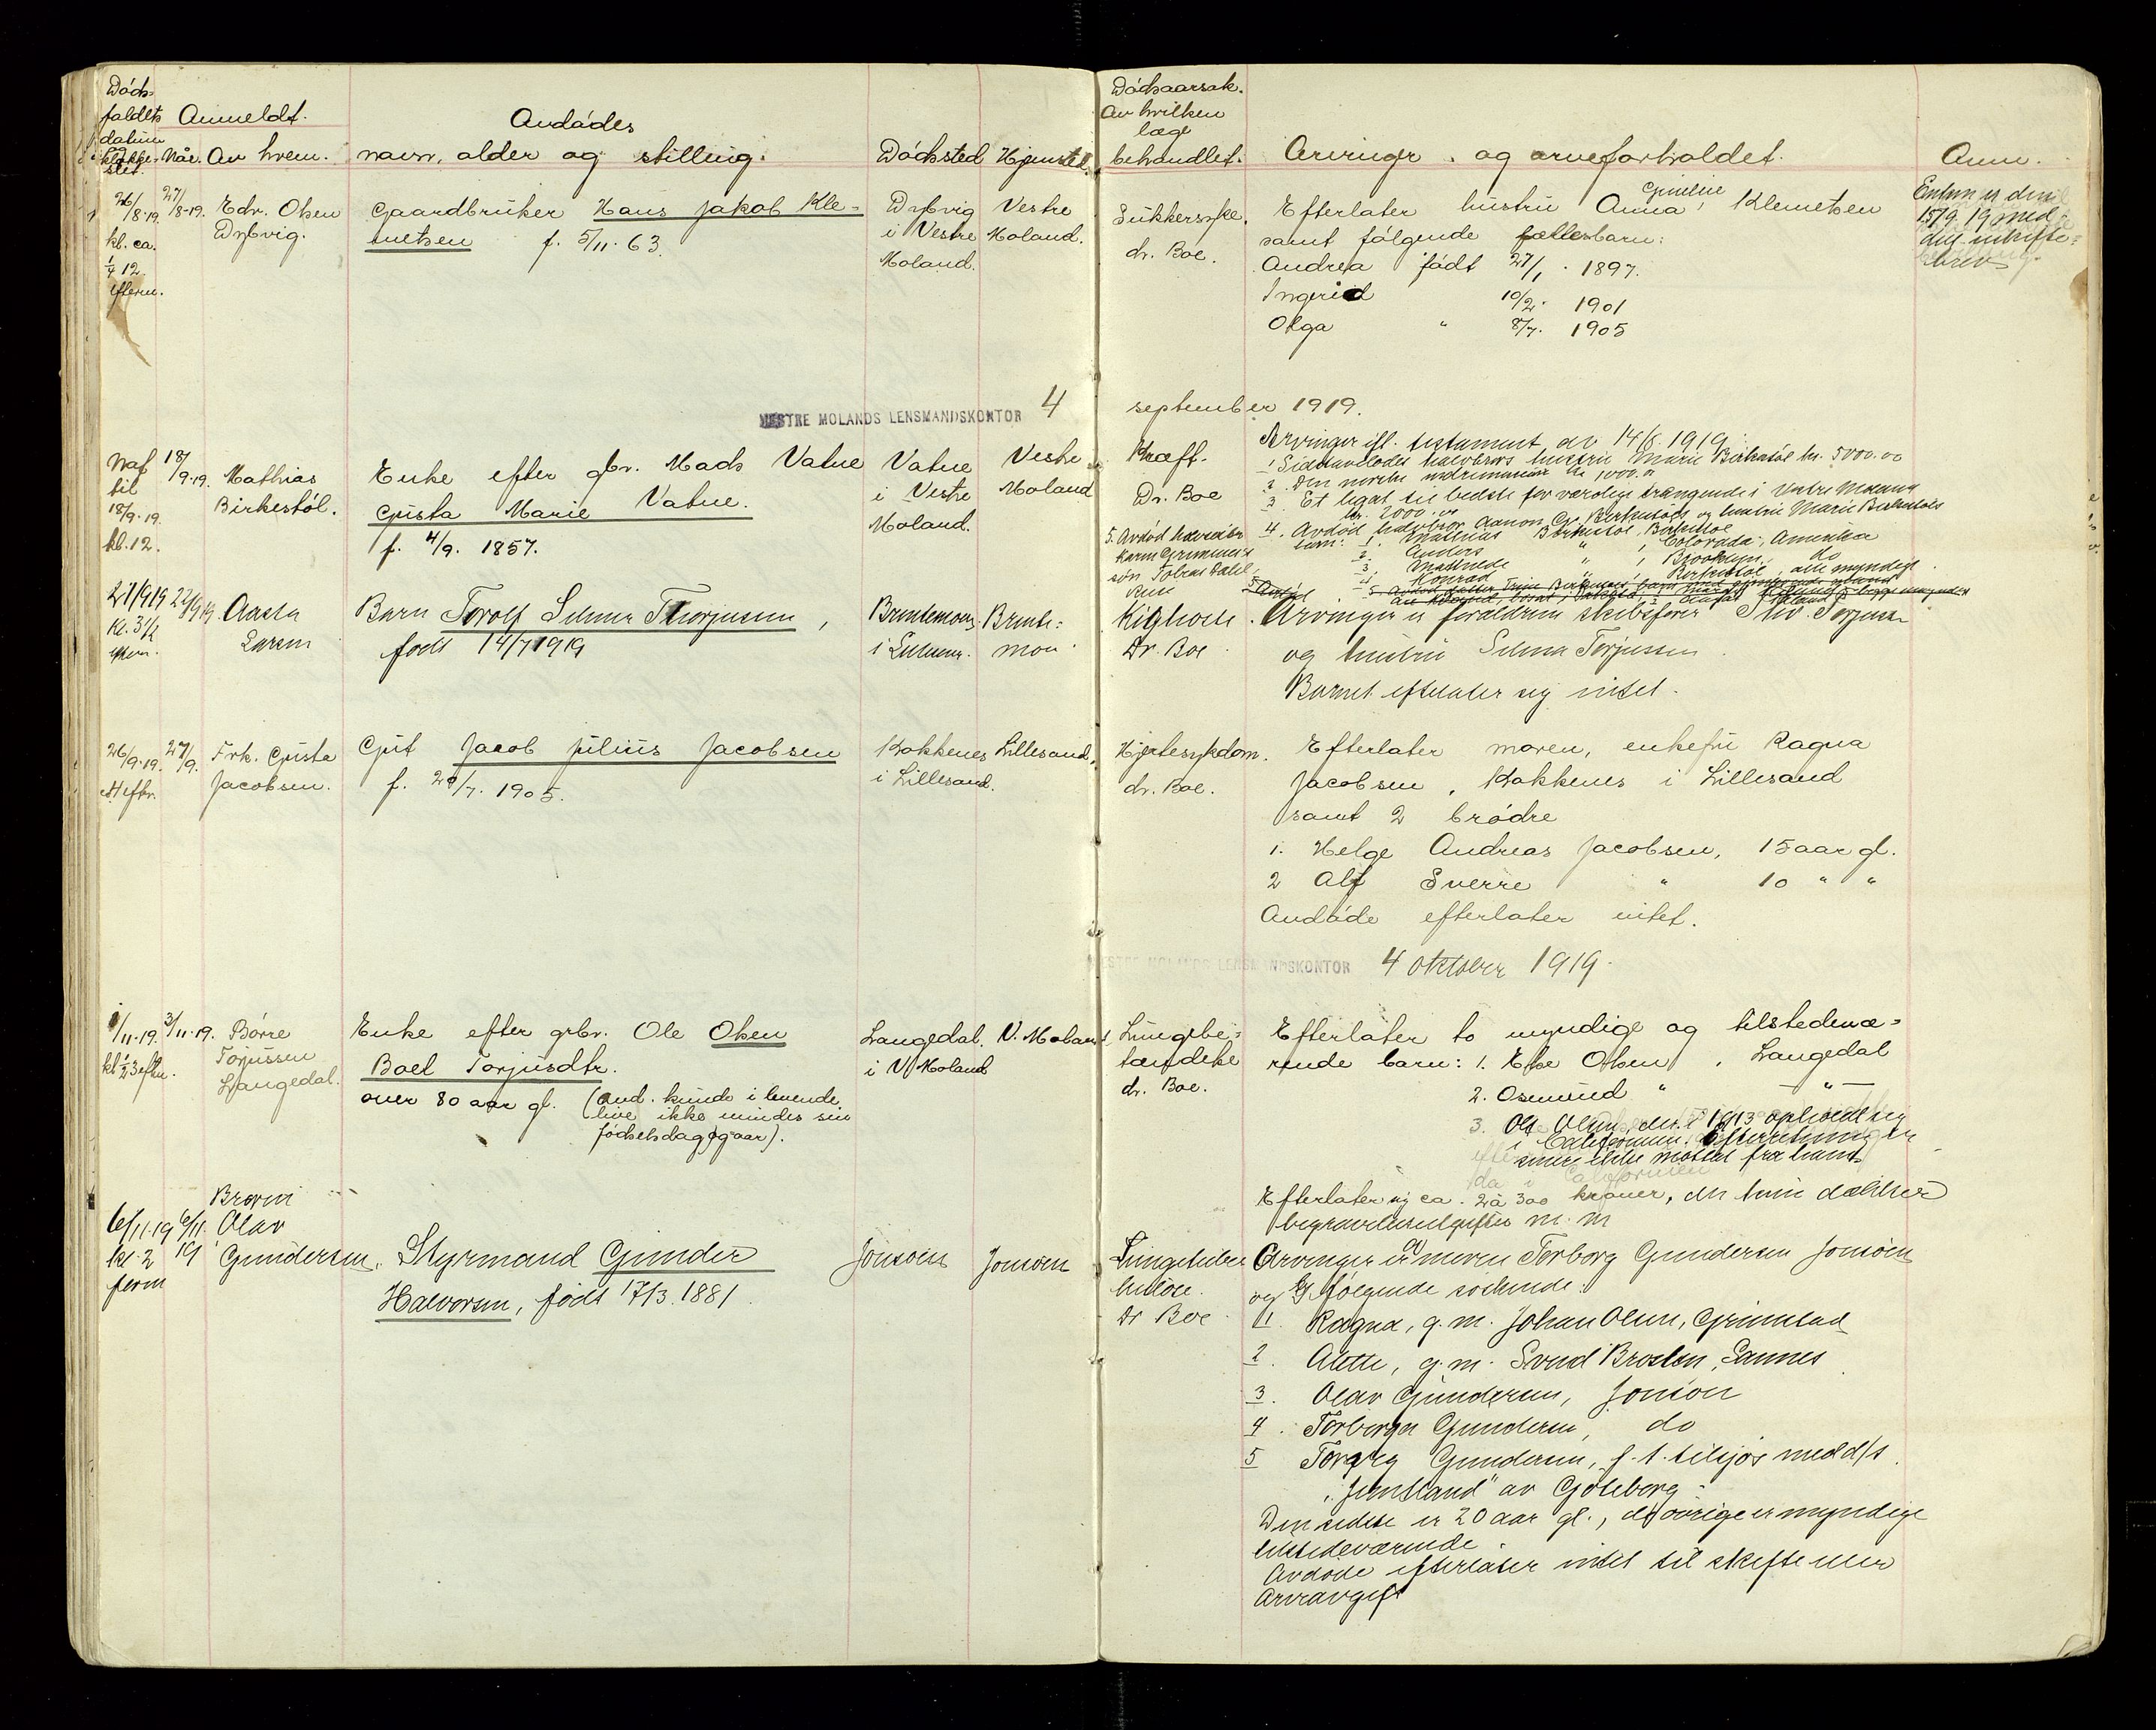 Døds-
faldets
datum
Anmeldt.
Når. Av hvem.
Avdødes
navn, alder og stilling.
Dødssted
Hjemsted
Dødsaarsak.
Av hvilken
læge
behandlet.
Arvinger og arveforholdet.
Anm.
26/8-19.
kl. ca.
1/4 12
efterm.
27/8-19.
Edv. Olsen
Dybvig.
Gaardbruker Hans Jakob Kle-
metsen f. 5/11. 63.
Dybvig
i Vestre
Moland.
Vestre
Moland.
Sukkersyke.
dr. Boe.
Efterlater hustru Anna Gunelie Klemetsen
samt følgende fællesbarn:
Andrea født 27/1. 1897.
Ingerid 10/2. 1901
Olga " 8/7. 1905
Enken er
15/9. 19 med
VESTRE MOLANDS LENSMANDSKONTOR 4 september 1919.
Natt
til
18/9-19.
kl. 12.
18/9-19.
Mathias
Birkestøl.
Enke efter gbr. Mads Vatne
Gusta Marie Vatne.
f. 4/9. 1857.
Vatne
i Vestre
Moland.
Vestre
Moland
Kræft.
Dr. Boe
Arvinger ifl. testament av 14/6. 1919
1. Sidstavdødes halvbrors hustru Marie Birkestøl kr. 5000.00
2. Den norske indremission kr. 1000.00
3. Et legat til bedste for værdige trængende i Vestre Moland
kr. 2000.00
4. Avdød halvbror Aanon Birkestøls og hustru Marie Birkestøls
barn: 1. Mathias Birkestøl, Birkestøl
2. Anders " , Colorado, Amerika
3. Mathilde " , Brooklyn, do
4. Konrad " , Birkestøl, alle myndige.
21/9 19
kl. 3 1/2
efterm.
22/9 19
Aasta
Larsen
Barn Torolf Selmer Thorjussen,
født 14/7 1919
Brentemoen
i Lillesand.
Brente-
mon
Kighoste.
Dr. Boe
Arvinger er forældrene skibsfører Torjussen
og hustru Selma Torjussen
Barnet efterlater sig intet.
26/9-19.
27/9.
Frk. Gusta
Jacobsen.
Gut Jacob Julius Jacobsen
f. 20/7. 1905.
Kokkenes
i Lillesand.
Lillesand.
Hjertesykdom.
dr. Boe.
Efterlater moren, enkefru Ragna
Jacobsen, Kokkenes i Lillesand
samt 2 brødre
1. Helge Andreas Jacobsen, 15 aar gl.
2 Alf Sverre " 10 " "
Avdøde efterlater intet.
VESTRE MOLANDS LENSMANDSKONTOR 4 oktober 1919.
1/11-19.
kl 1/2 3 efterm.
3/11-19.
Børre
Torjussen
Langedal.
Enke efter gbr. Ole Olsen
Boel Torjusdtr.
over 80 aar gl. (avd. kunde i levende
live ikke mindes sin
fødselsdag og aar).
Langedal.
i V. Moland
V. Moland
Lungebe-
tændelse
dr. Boe.
Efterlater to myndige og tilstedevæ-
rende barn: 1. Else Olsen, Langedal
2. Osmund " — " —
3. Ole Olsen, der i 1913 opholdt sig
i Californien. Efterretning er
senere ikke mottat fra ham.
Efterlater sig ca. 2 à 300 kroner, der kun dækker
begravelsesutgifter m. m
6/11-19
kl. 2
form
6/11
19
Broren
Olav
Gundersen.
Styrmand Gunder
Halvorsen, født 17/3. 1881
Jonsøen
Jonsøen
Lungetuber-
kulose.
Dr Boe
Arvinger er moren Torborg Gundersen Jonsøen
og 5 følgende søskende:
1. Ragna, g. m. Johan Olsen, Grimstad
2. Alette, g. m. Svend Brosten, Sannes
3. Olav Gundersen, Jonsøen
4. Torborga Gundersen, do
5 Torgny Gundersen, f. t. tilsjøs med d/s
"Jemtland" av Göteborg
Den sidste er 20 aar gl., de øvrige er myndige
tilstedeværende
Avdøde efterlater intet til skifte eller
arveavgift